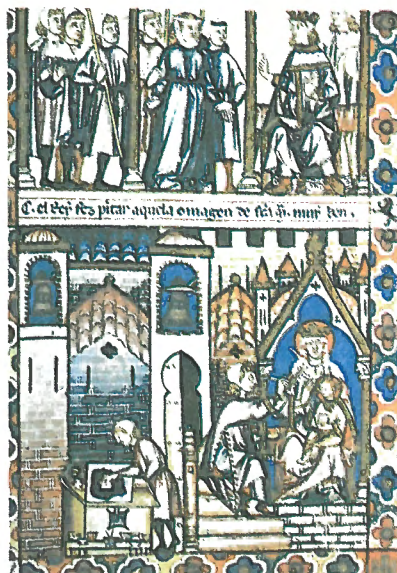 C. el Rey fez pĩtar aquela omagen de sc̃a M̃. muy ben.